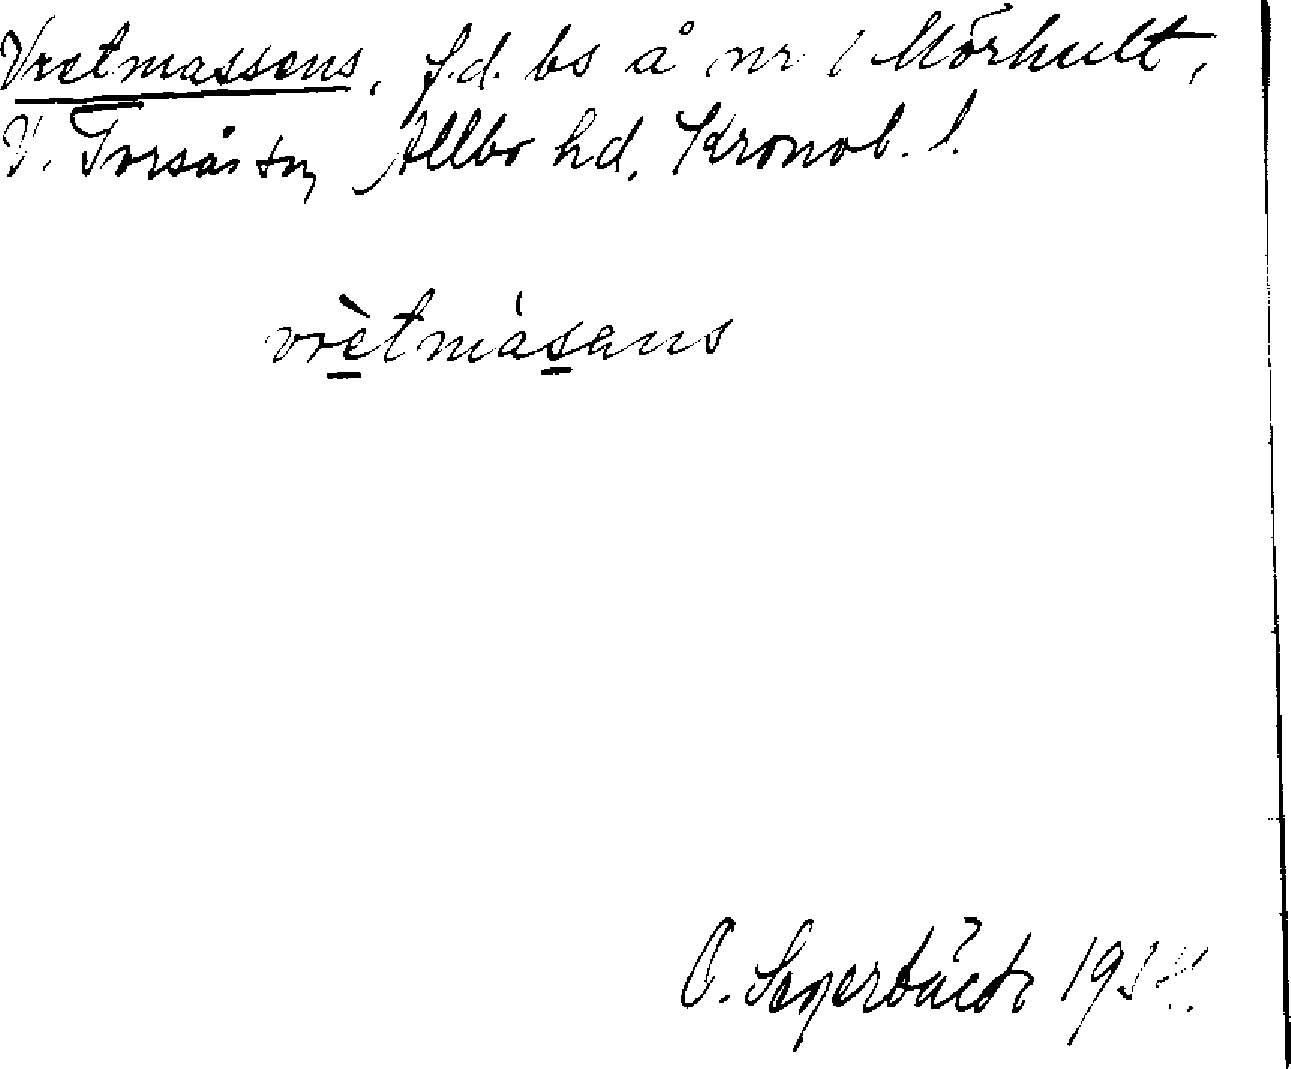 Vretmassens, f.d. bs å nr 1 Mörhult,
V. Torsås sn, Allbo hd, Kronob. l.
vrètmàsens
O. Sagerbäck